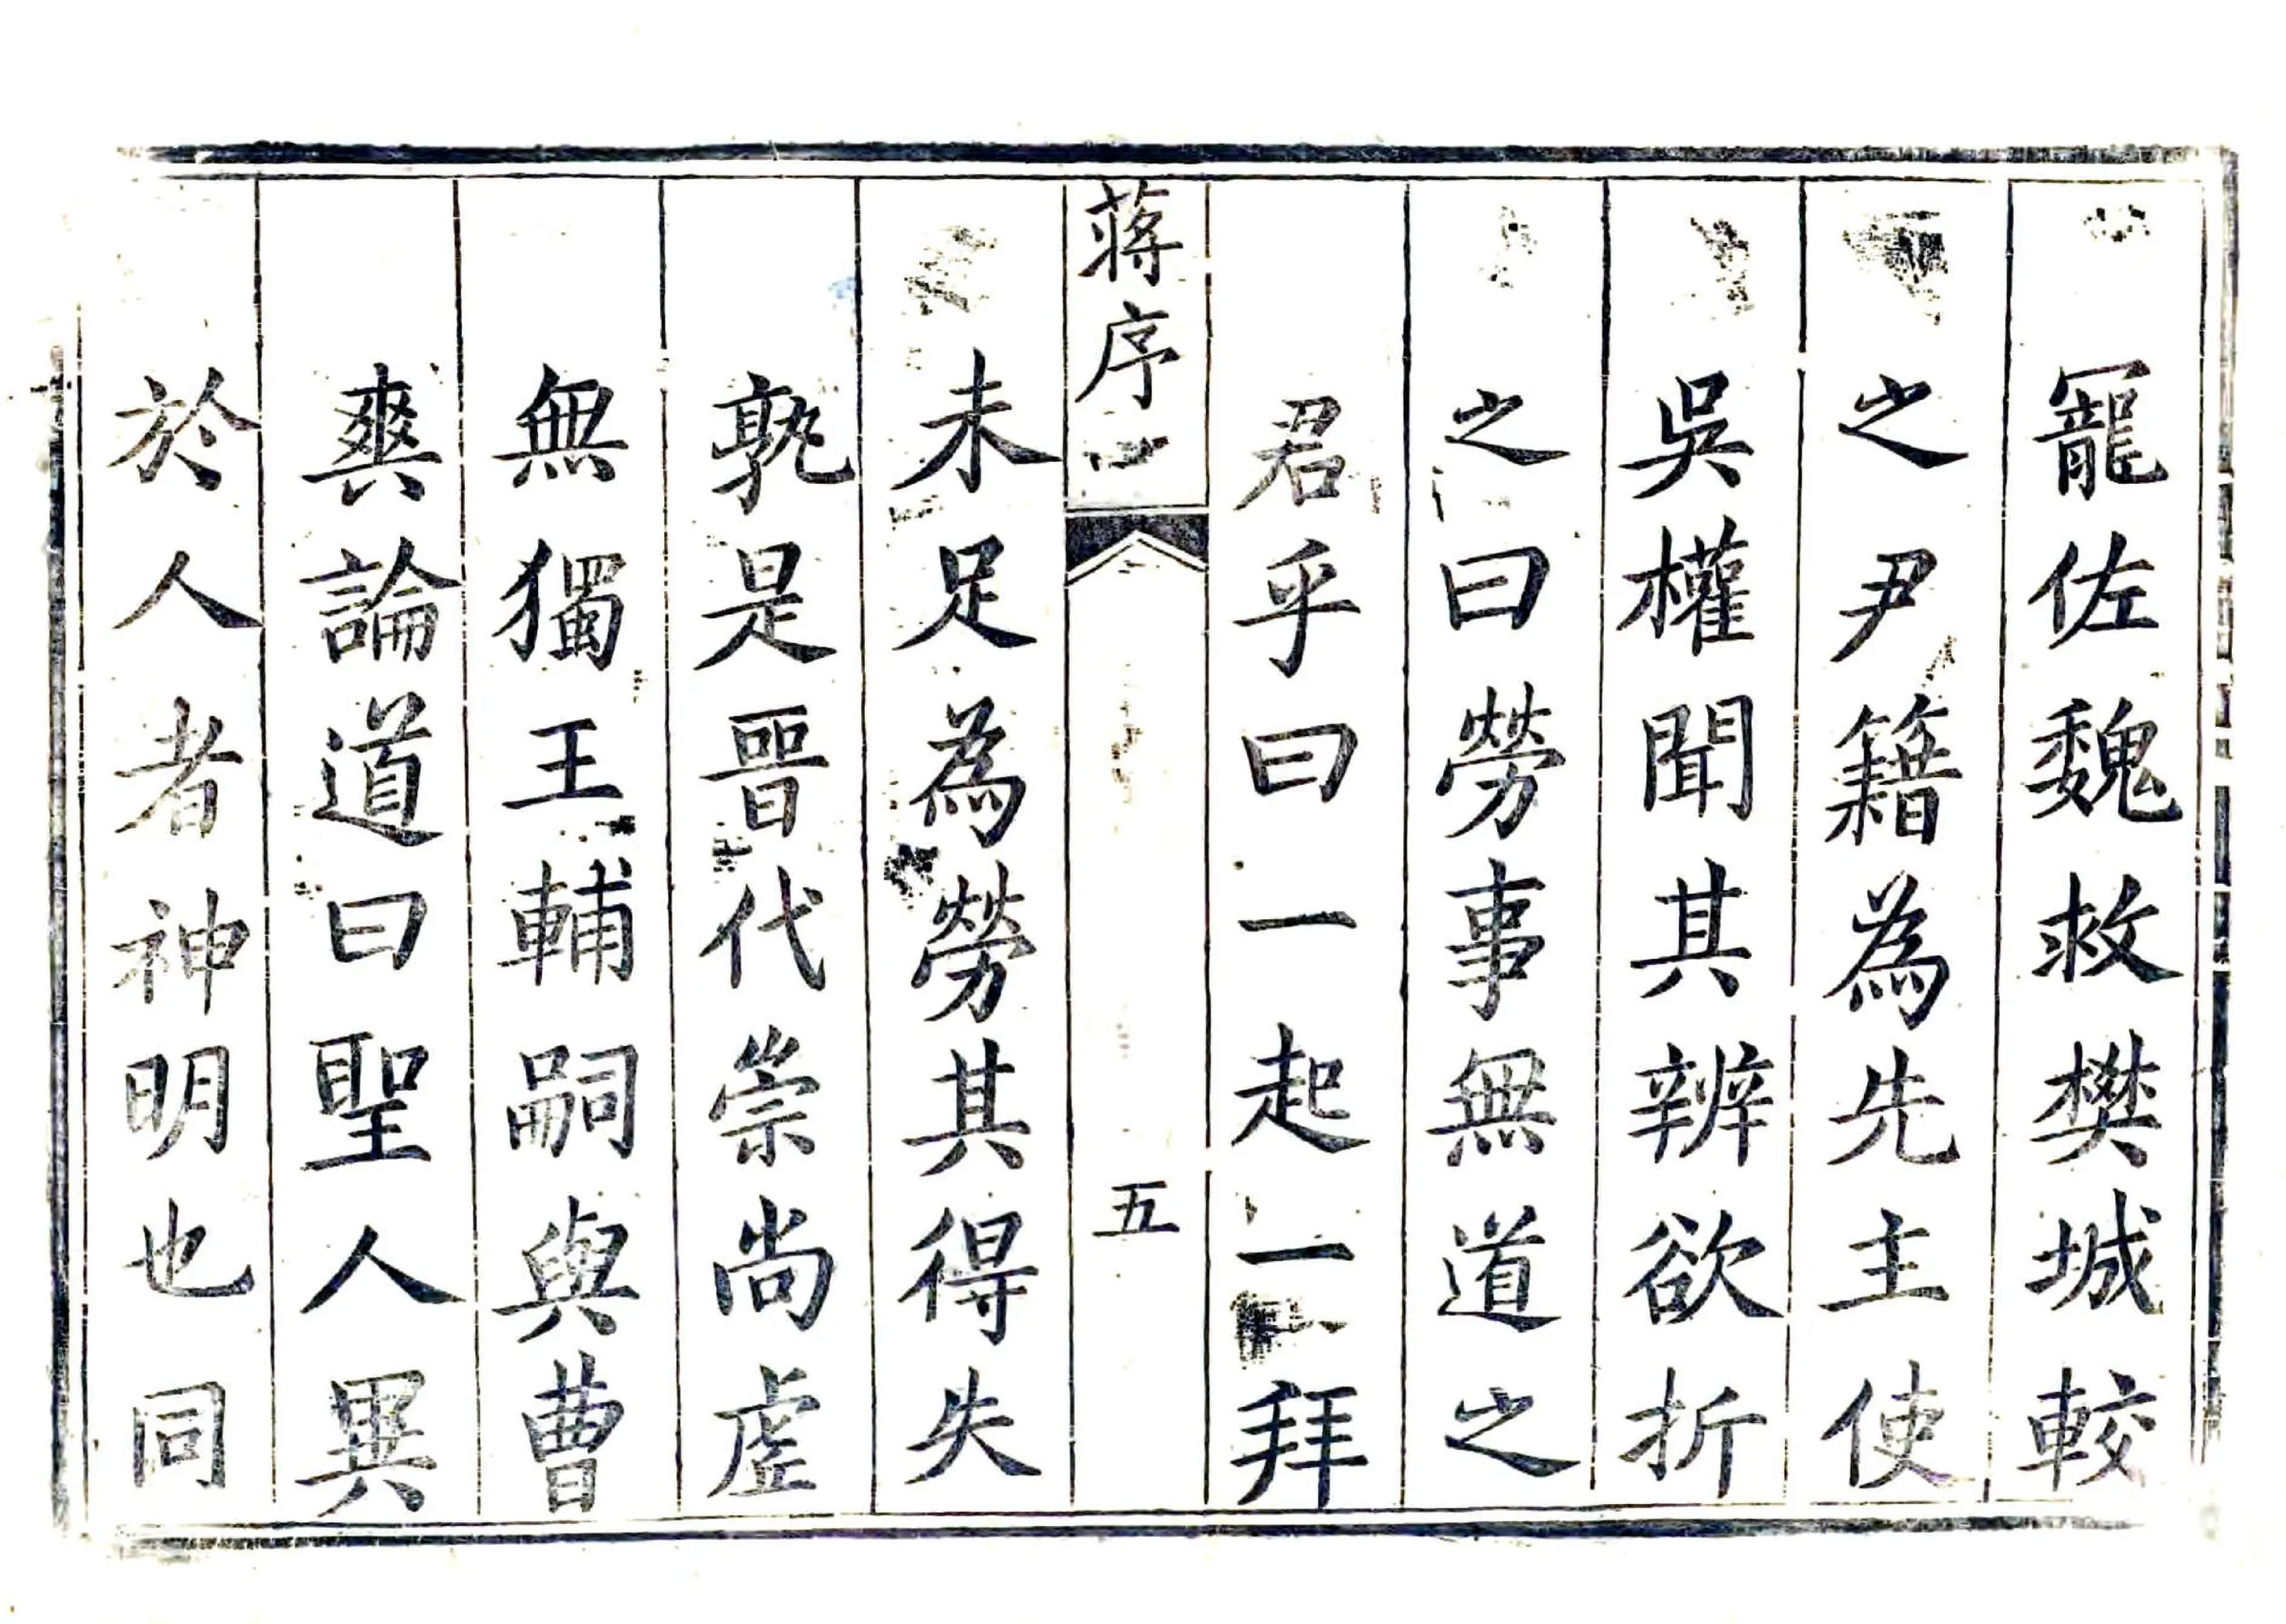 寵佐魏救樊城較
之尹籍為先主使
吳權聞其辨欲折
之曰勞事無道之
君乎曰一起一拜
蔣序
五
未足為勞其得失
孰是晉代崇尚虛
無獨王輔嗣與曹
爽論道曰聖人異
於人者神明也同